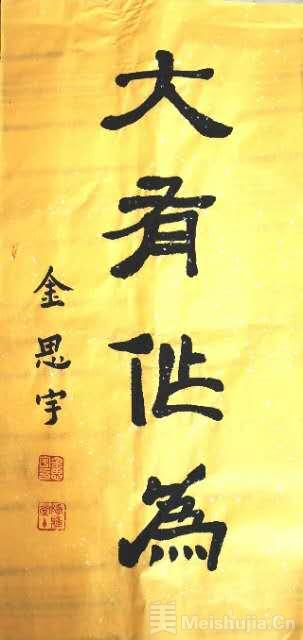 大有作為
金思宇
美 Meishujia.Cn